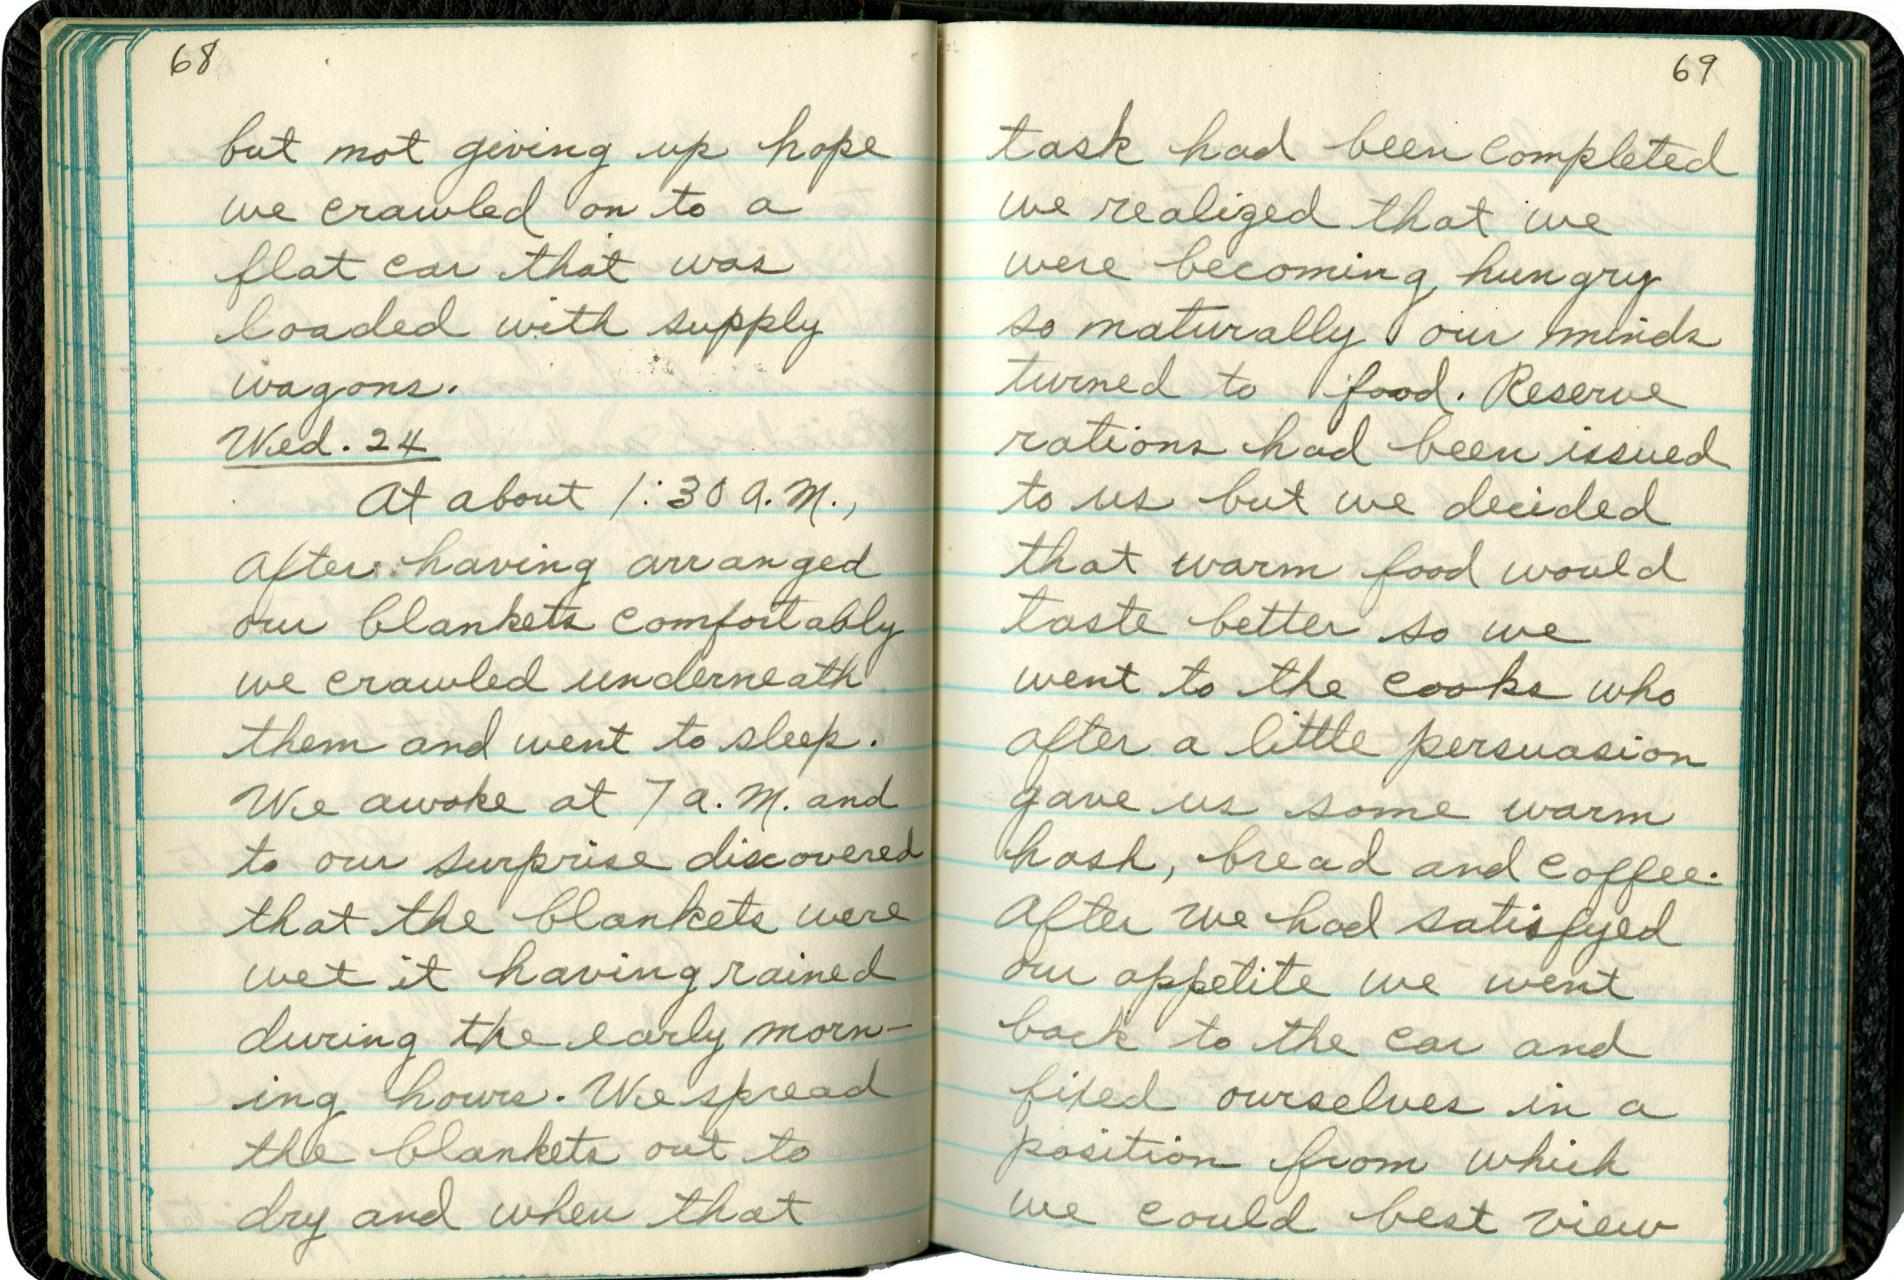 68
but not giving up hope
we crawled on to a
flat car that was
loaded with supply
wagons.
Wed. 24
At about 1:30 A.M.,
after having arranged
our blankets comfortably
we crawled underneath
them and went to sleep.
We awoke at 7 a.M. and
to our surprise discovered
that the blankets were
wet it having rained
during the early morn-
ing hours. We spread
the blankets out to
dry and when that
69
task had been completed
we realized that we
were becoming hungry
so naturally our minds
turned to food. Reserve
rations had been issued
to us but we decided
that warm food would
taste better so we
went to the cooks who
after a little persuasion
gave us some warm
hash, bread and coffee.
After we had satisfyed
our appetite we went
back to the car and
fixed ourselves in a
position from which
we could best view